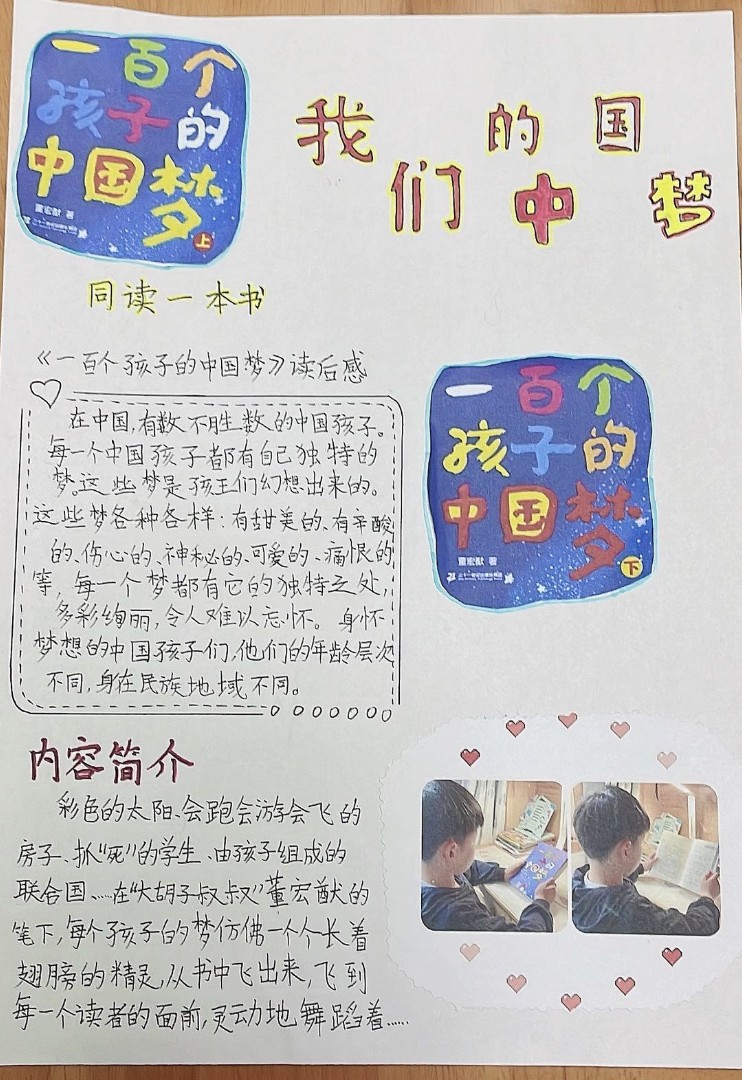 一百个
孩子的
中国梦
董宏猷 著
上
我们的中国梦
同读一本书
《一百个孩子的中国梦》读后感
在中国,有数不胜数的中国孩子。
每一个中国孩子都有自己独特的
梦。这些梦是孩王们幻想出来的。
这些梦各种各样:有甜美的、有辛酸
的、伤心的、神秘的、可爱的、痛恨的
等,每一个梦都有它的独特之处,
多彩绚丽,令人难以忘怀。身怀
梦想的中国孩子们,他们的年龄层次
不同,身在民族地域不同。
一百个
孩子的
中国梦
董宏猷 著
下
内容简介
彩色的太阳、会跑会游会飞的
房子、抓“死”的学生、由孩子组成的
联合国、……在“大胡子叔叔”董宏猷的
笔下,每个孩子的梦仿佛一个个长着
翅膀的精灵,从书中飞出来,飞到
每一个读者的面前,灵动地舞蹈着……